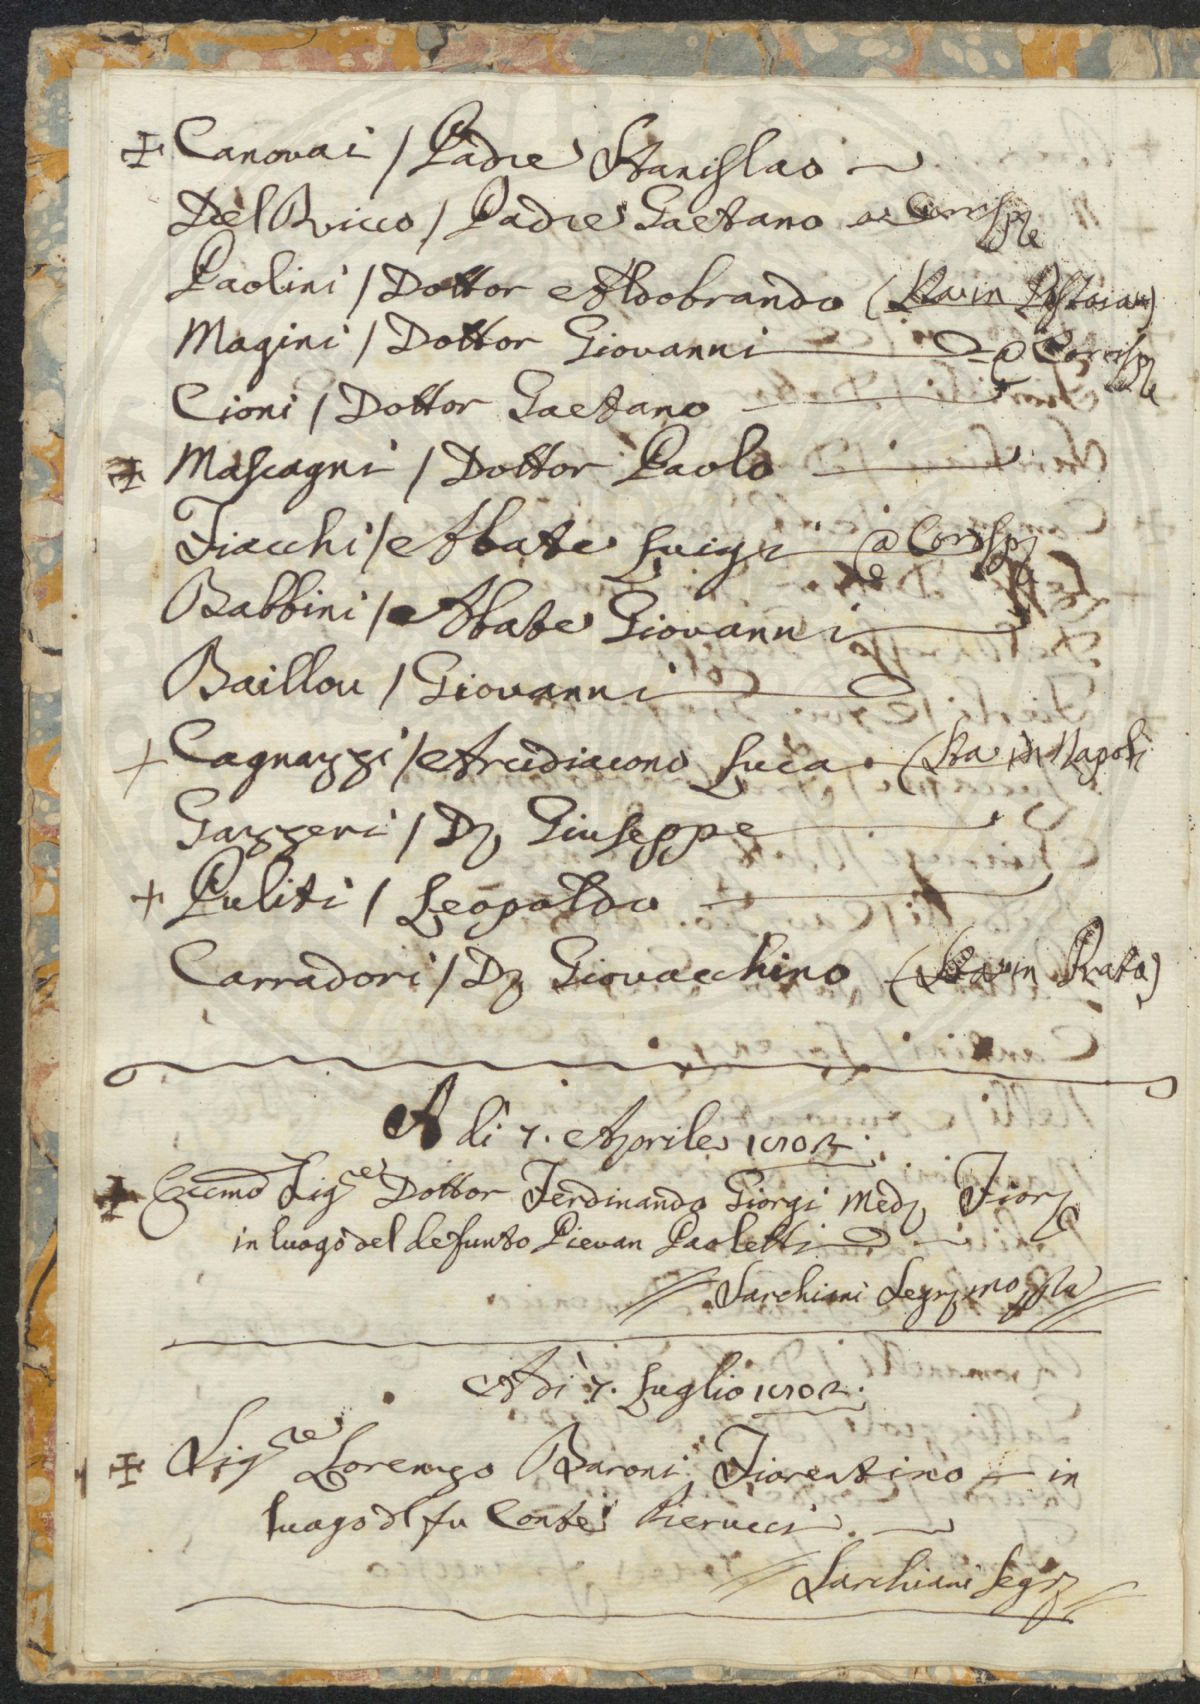 ✠ Canovai / Padre Stanislao
Del Ricco / Padre Gaetano @ Corrisple
Paolini / Dottor Aldobrando (Sta in Pistoia)
Magini / Dottor Giovanni @ Corrisple
Cioni / Dottor Gaetano
✠ Mascagni / Dottor Paolo
Fiacchi / Abate Luigi @ Corrisp
Babbini / Abate Giovanni
Baillou / Giovanni
+ Cagnazzi / Arcidiacono Luca (Sta in Napoli
Gazzeri / D. Giuseppe
+ Puliti / Leopoldo
Carradori / D. Giovacchino (Sta in Prato)
A di 7. Aprile 1802.
✠ Eccmo Sigre Dottor Ferdinando Giorgi Med. Fior.
in luogo del defunto Pievan Paoletti
Sarchiani Segr.
Adì 7. Luglio 1802.
✠ Sigre Lorenzo Baroni Fiorentino in
luogo del fu Conte Pierucci.
Sarchiani Segr.